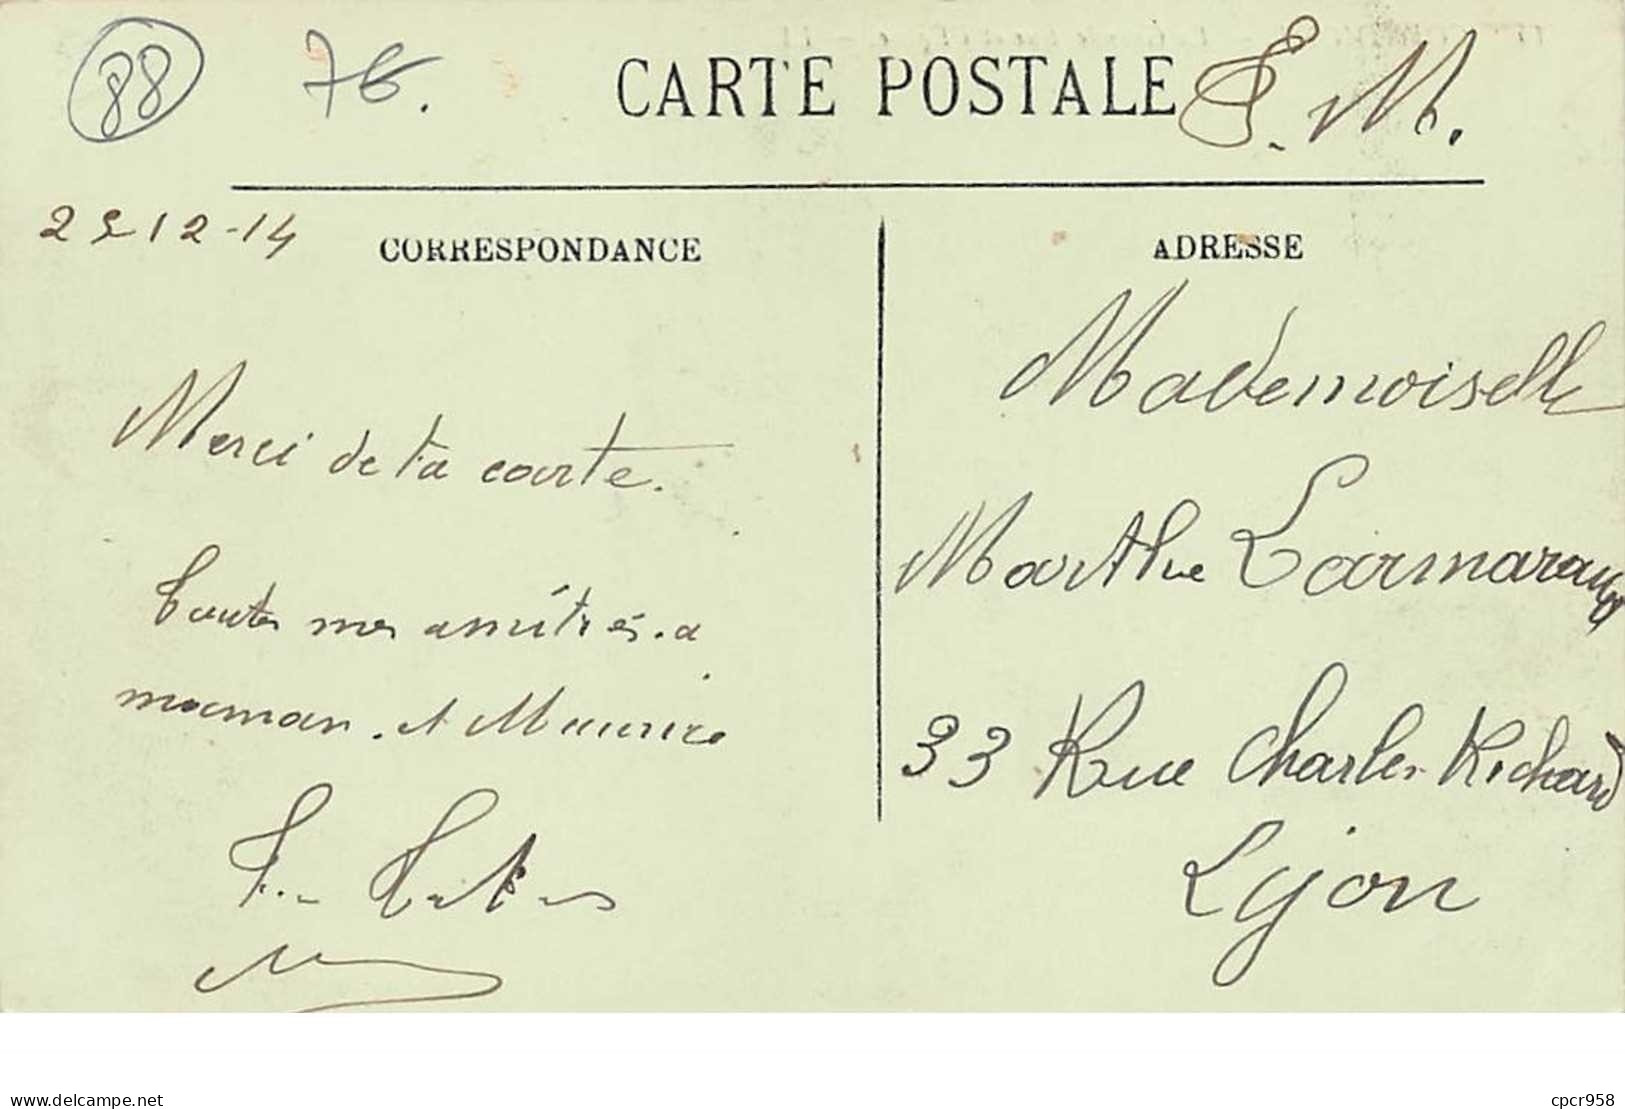 88 76.
CARTE POSTALE
F. M.
CORRESPONDANCE
ADRESSE
Merci de ta carte.
Toutes mes amitiés. a
maman. et Maurice
Mademoiselle
Marthe
33 Rue Charles Richard
Lyon
delcampe.net
cpcr958